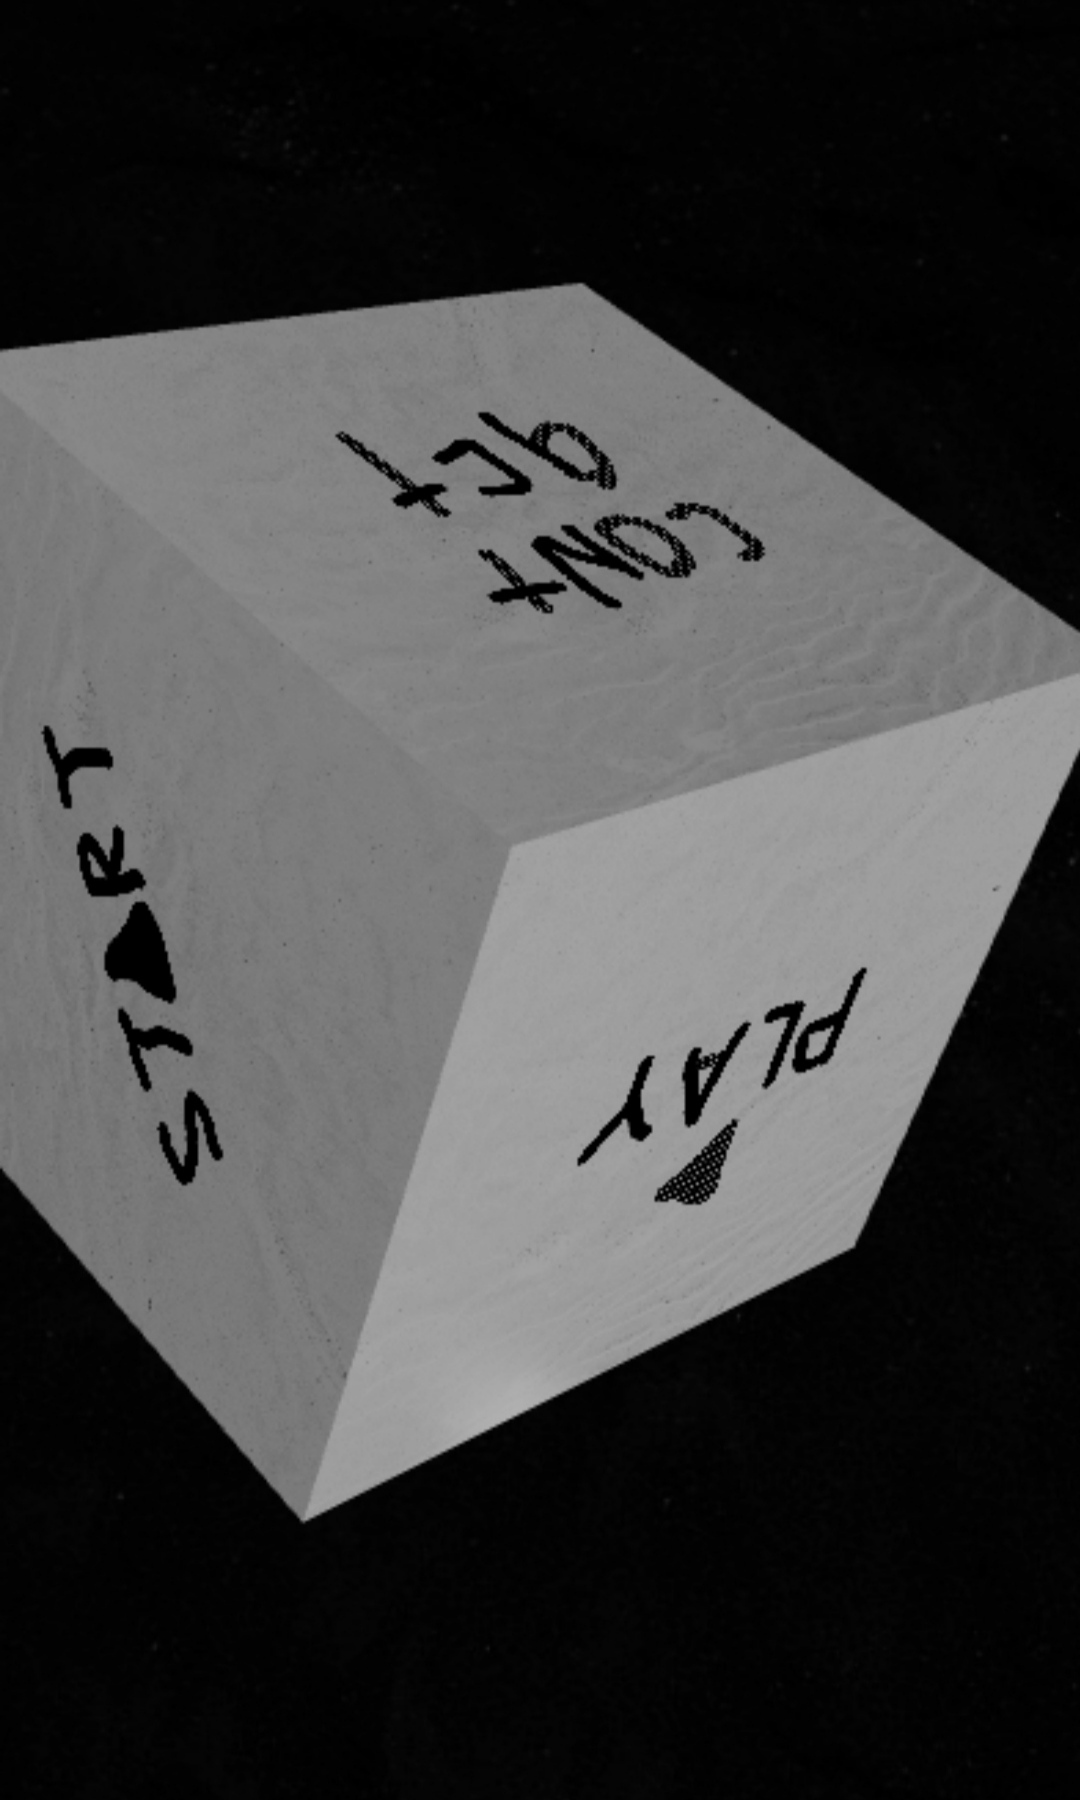 CONt
act
START
PLAY